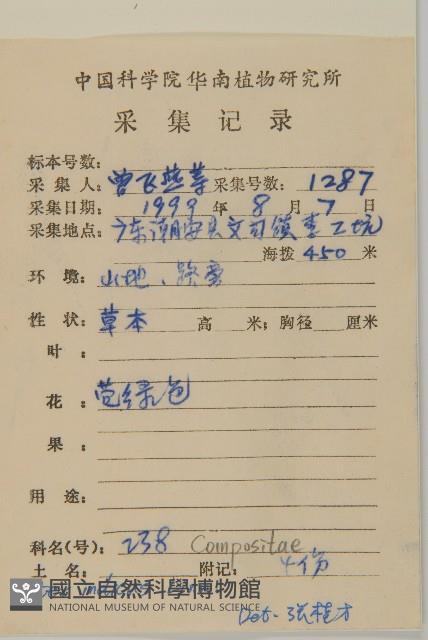 中国科学院华南植物研究所
采集记录
标本号数:
采集人: 曾飞燕等 采集号数: 1287
采集日期: 1999 年 8 月 7 日
采集地点: 广东潮安县文祠镇李工坑
海拨 450 米
环境: 山地、路旁
性状: 草本 高 米; 胸径 厘米
叶:
花: 苞绿色
果:
用途:
科名(号): 238 Compositae
土名: 附记: 4份
國立自然科學博物館
NATIONAL MUSEUM OF NATURAL SCIENCE
Det. 张桂才